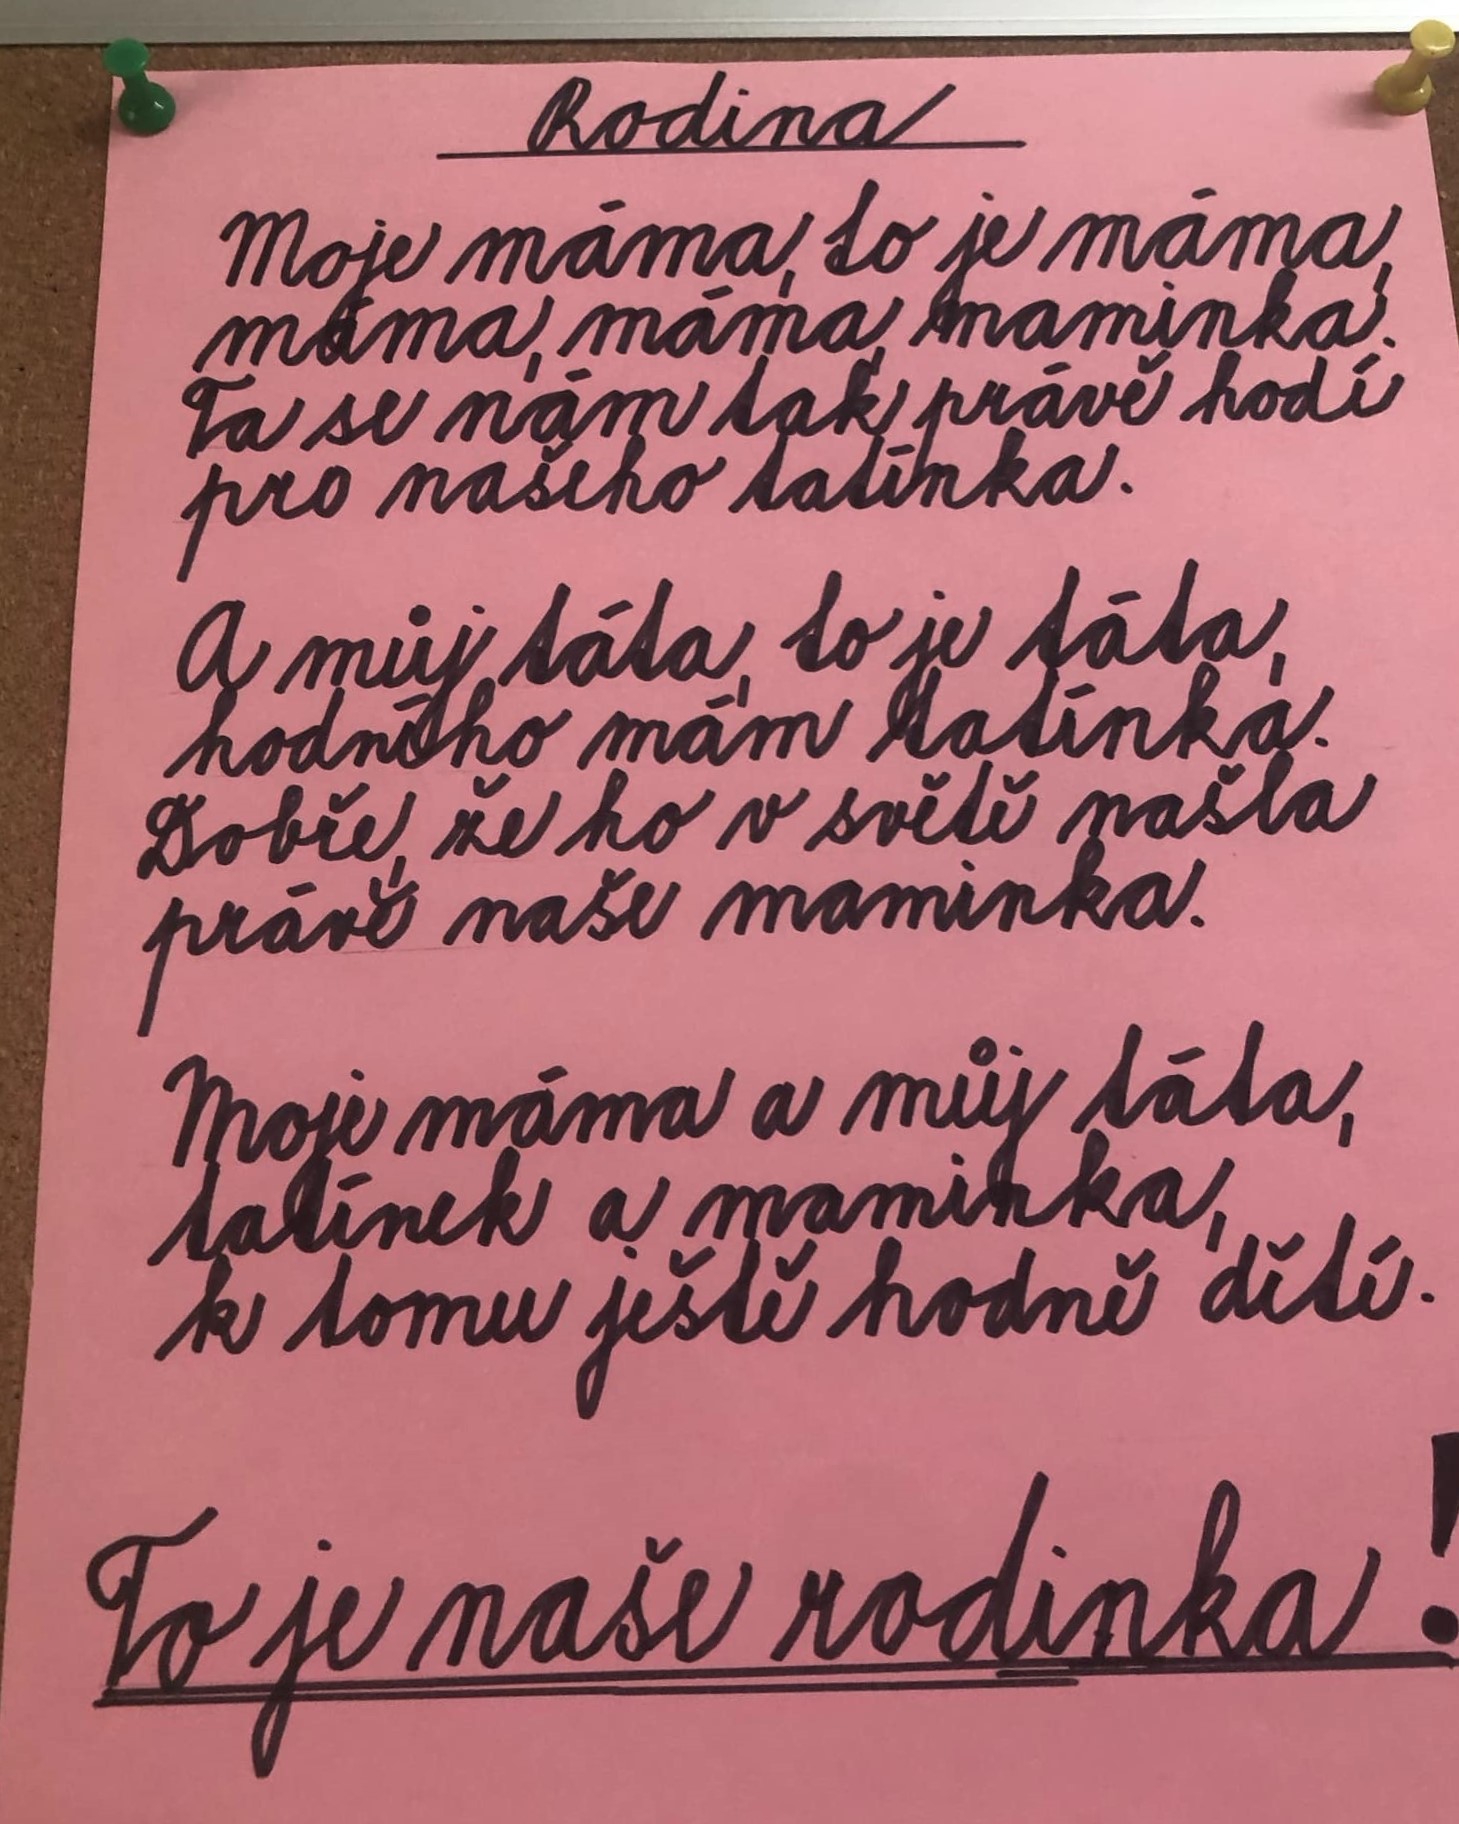 Rodina
Moje máma, to je máma,
máma, máma, maminka.
Ta se nám tak právě hodí
pro našeho tatínka.
A můj táta, to je táta,
hodného mám tatínka.
Dobře, že ho v světě našla
právě naše maminka.
Moje máma a můj táta,
tatínek a maminka,
k tomu ještě hodně dětí.
To je naše rodinka!